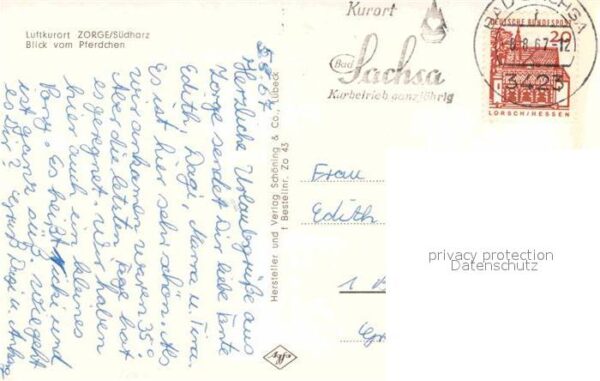 Luftkurort ZORGE/Südharz
Blick vom Pferdchen
5.8.67
Herzliche Urlaubsgrüße aus
Zorge sendet Dir liebe Tante
Edith Dagi, Mama u. Tina.
Es ist hier sehr schön. Als
wir ankamen waren 35°.
Aber die letzten Tage hat
es geregnet. Wir haben
hier auch ein kleines
Pony. Es heißt und
ist ganz süß, wie geht
es Dir? Gruß Dagi u.
Hersteller und Verlag Schöning & Co., Lübeck
f Bestellnr. Zo 43
Agfa
Kurort
Bad
Sachsa
Kurbetrieb ganzjährig
BAD SACHSA
8.67-12
3423
DEUTSCHE BUNDESPOST
20
LORSCH/HESSEN
Frau
Edith
1
privacy protection
Datenschutz